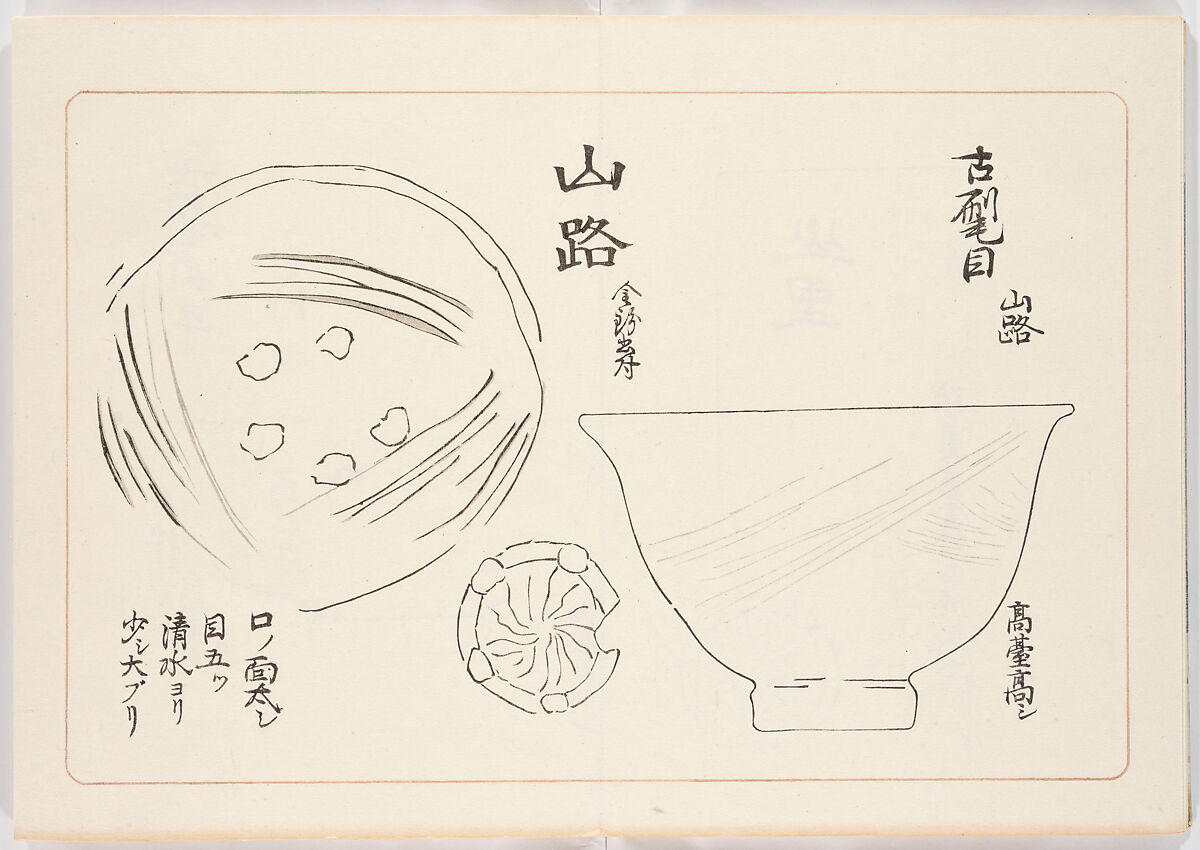 古刷毛目
山路
高臺高シ
山路
金粉書付
口ノ面太シ
目五ツ
清水ヨリ
少シ大ブリ